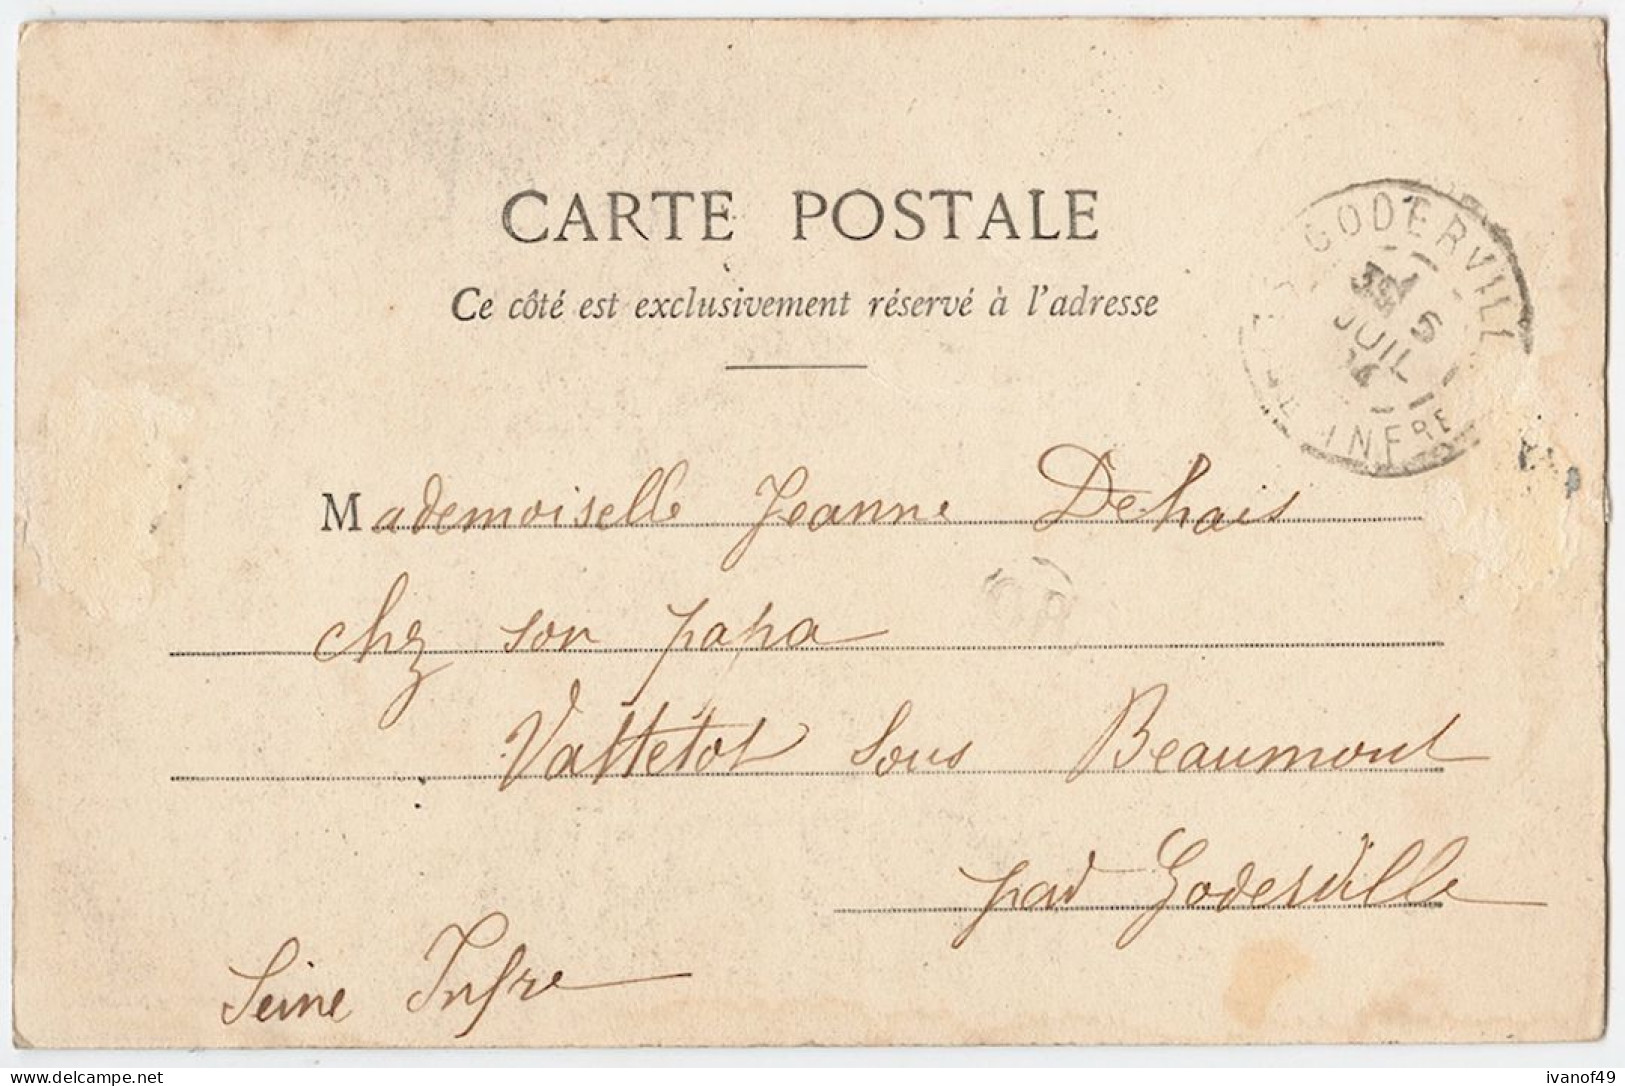 CARTE POSTALE
Ce côté est exclusivement réservé à l'adresse
GODERVILL
5
JUIL
INFRE
Mademoiselle Jeanne Dehais
chez son papa
OR
Vattetot sous Beaumont
par Goderville
Seine Infre
delcampe.net
ivanof49